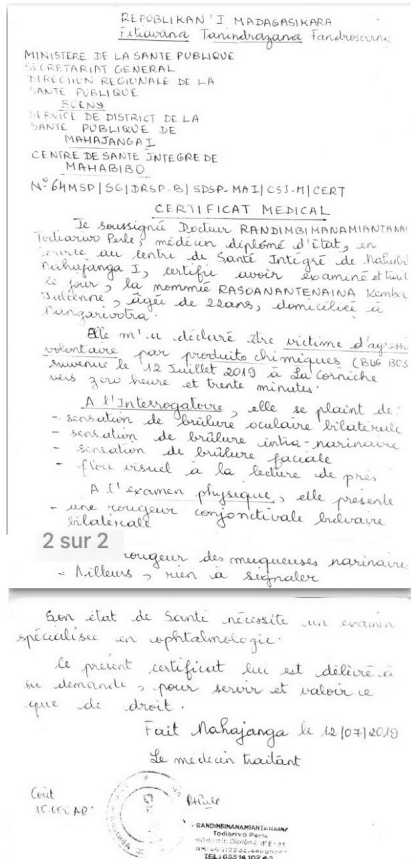 REPOBLIKAN'I MADAGASIKARA
Fitiavana Tanindrazana Fandrosoana
MINISTERE DE LA SANTE PUBLIQUE
SECRETARIAT GENERAL
DIRECTION REGIONALE DE LA
SANTE PUBLIQUE
BOENY
SERVICE DE DISTRICT DE LA
SANTE PUBLIQUE DE
MAHAJANGA I
CENTRE DE SANTE INTEGRE DE
MAHABIBO
N° 64MSP/SG/DRSP-B/SDSP-MAI/CSI-M/CERT
CERTIFICAT MEDICAL
Je soussigné Docteur RANDIMBIMANAMIANTANAI
Todiarivo Perle, médecin diplômé d'état, en
service au centre de Santé Intégré de Mahabibo
Mahajanga I, certifie avoir examiné et traité
ce jour, la nommée RASOANANTENAINA
Julienne, âgée de 22ans, domiciliée à
Elle m'a déclaré être victime d'agression
volontaire par produits chimiques (BIG BOSS
survenue le 12 Juillet 2019 à La Corniche
vers zero heure et trente minutes.
A l'Interrogatoire, elle se plaint de:
- sensation de brûlure oculaire bilatérale
- sensation de brûlure intra-narinaire
- sensation de brûlure faciale
- flou visuel à la lecture de près
A l'examen physique, elle présente
- une rougeur conjonctivale
bilatérale
2 sur 2
rougeur des muqueuses narinaire
- Ailleurs, rien à signaler
Son état de Santé nécessite un examen
spécialisé en ophtalmologie.
Le présent certificat lui est délivré à
sa demande, pour servir et valoir ce
que de droit.
Fait Mahajanga le 12/07/2019
Le medecin traitant
Coût
RANDIMBIMANAMIANTANAINA
Todiarivo Perle
Médecin Diplômé d'Etat